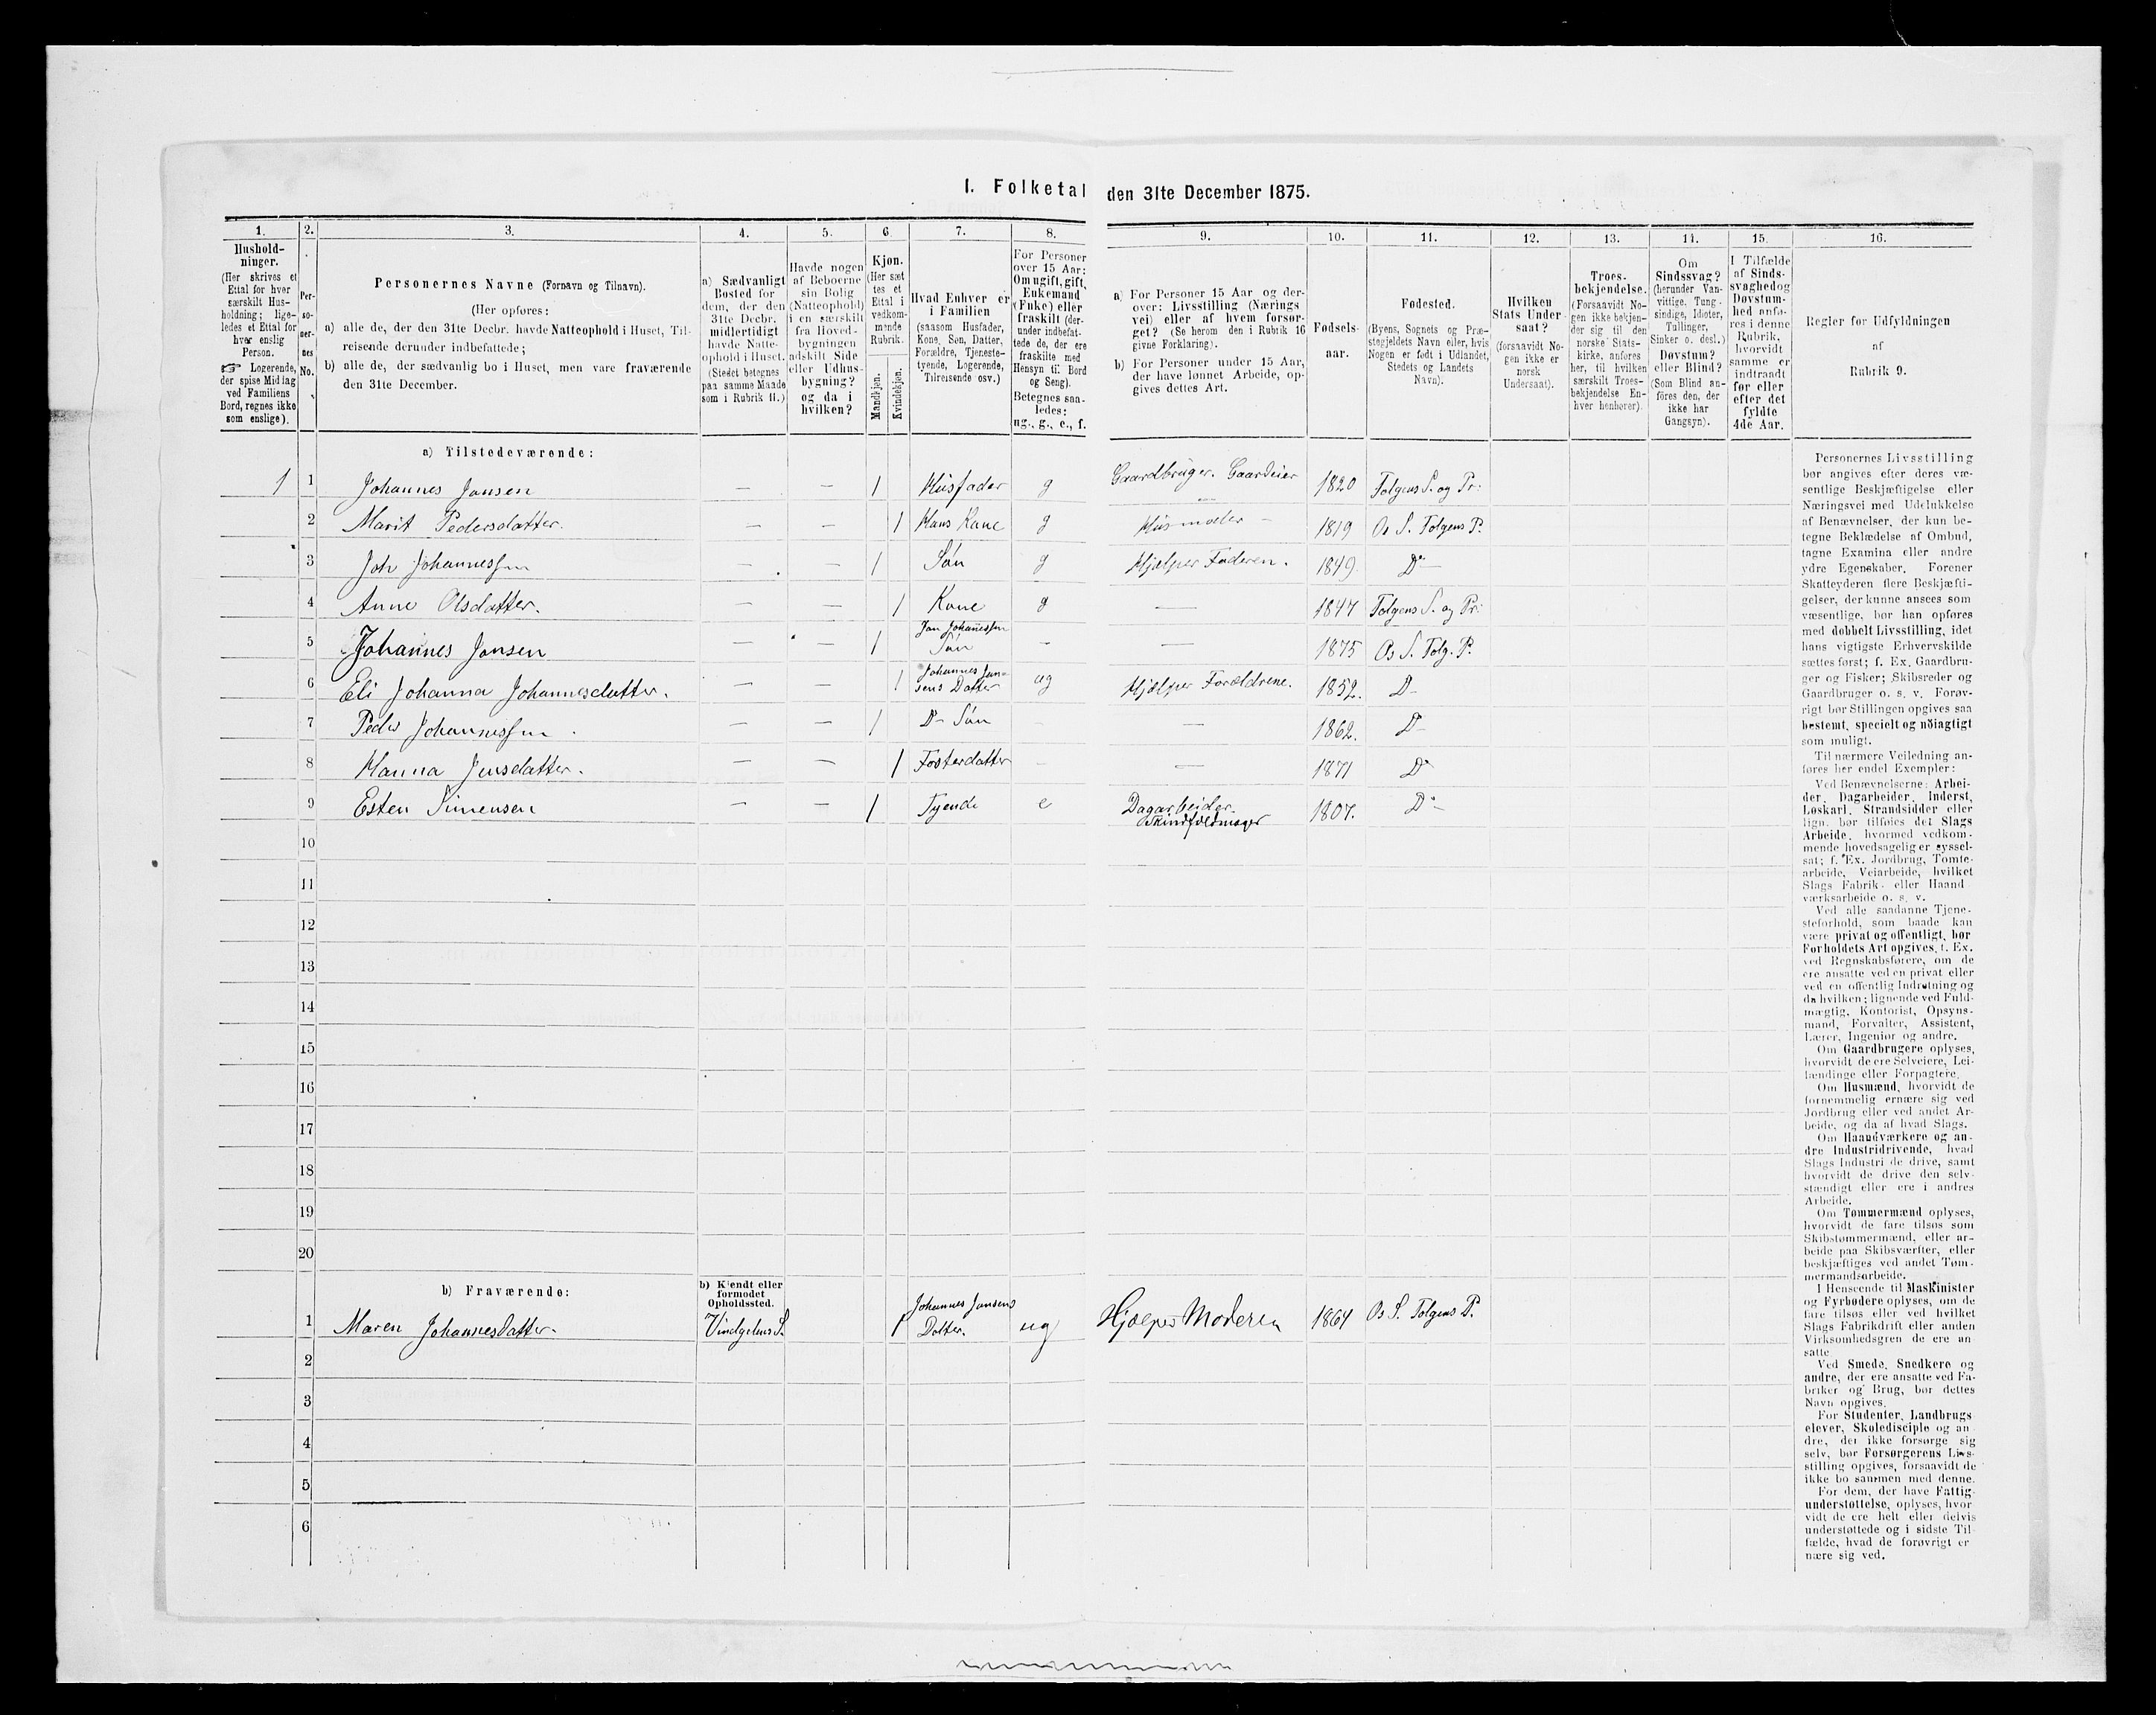 I. Folketal den 31te December 1875.
1.
Hushold-
ninger.
(Her skrives et
Ettal for hver
særskilt Hus-
holdning; lige-
ledes et Ettal for
hver enslig
Person.
☞ Logerende,
der spise Middag
ved Familiens
Bord, regnes ikke
som enslige).
2.
Per-
so-
ner-
nes
No.
3.
Personernes Navne (Fornavn og Tilnavn).
(Her opføres:
a) alle de, der den 31te Decbr. havde Natteophold i Huset, Til-
reisende derunder indbefattede;
b) alle de, der sædvanlig bo i Huset, men vare fraværende
den 31te December.
4.
a) Sædvanligt
Bosted for
dem, der den
31te Decbr.
midlertidigt
havde Natte-
ophold i Huset.
(Stedet betegnes
paa samme Maade
som i Rubrik 11.)
5.
Havde nogen
af Beboerne
sin Bolig
(Natteophold)
i en særskilt
fra Hoved-
bygningen
adskilt Side
eller Udhus-
bygning?
og da i
hvilken?
6.
Kjøn.
(Her sæt
tes et
Ettal i
vedkom-
mende
Rubrik.
Mandkjøn.
Kvindekjøn.
7.
Hvad Enhver er
i Familien
(saasom Husfader,
Kone, Søn, Datter,
Forældre, Tjeneste-
tyende, Logerende,
Tilreisende osv.)
8.
For Personer
over 15 Aar:
Om ugift, gift,
Enkemand
(Enke) eller
fraskilt (der-
under indbefat-
tede de, der ere
fraskilte med
Hensyn til Bord
og Seng).
Betegnes saa-
ledes:
ug., g., e., f.
9.
a) For Personer 15 Aar og der-
over: Livsstilling (Nærings
vei) eller af hvem forsør-
get? (Se herom den i Rubrik 16
givne Forklaring).
b) For Personer under 15 Aar,
der have lønnet Arbeide, op-
gives dettes Art.
10.
Fødsels-
aar.
11.
Fødested.
(Byens, Sognets og Præ-
stegjeldets Navn eller, hvis
Nogen er født i Udlandet,
Stedets og Landets
Navn).
12.
Hvilken
Stats Under-
saat?
(forsaavidt No-
gen ikke er
norsk
Undersaat).
13.
Troes-
bekjendelse.
(Forsaavidt No-
gen ikke bekjen-
der sig til den
norske Stats-
kirke, anføres
her, til hvilken
særskilt Troes-
bekjendelse En-
hver henhører).
14.
Om
Sindssvag?
(herunder Van-
vittige, Tung-
sindige, Idioter,
Tullinger,
Sinker o. desl.)
Døvstum?
eller Blind?
(Som Blind an-
føres den, der
ikke har
Gangsyn).
15.
I Tilfælde
af Sinds-
svaghed og
Døvstum-
hed anfø-
res i denne
Rubrik,
hvorvidt
samme er
indtraadt
før eller
efter det
fyldte
4de Aar.
16.
Regler for Udfyldningen
af
Rubrik 9.
a) Tilstedeværende:
1 1 Johannes Jonsen — — 1 Husfader g Gaardbruger. Gaardeier 1820 Tolgens S. og Pr:
2 Marit Pedersdatter. — — 1 Hans Kone g Husmoder — 1819 Os S. Tolgens P.
3 Joh Johannessen — — 1 Søn g Hjælper Faderen. 1849 Do
4 Anne Olsdatter. — — 1 Kone g — 1847 Tolgens S. og Pr:
5 Johannes Jonsen — — 1 Jon Johannessen Søn — — 1875 Os S. Tolg. P.
6 Eli Johanna Johannesdatter. — — 1 Johannes Jon-
sens Datter ug Hjælper Forældrene. 1852. D—
7 Peder Johannessen — — 1 D— Søn — — 1862. D—
8 Hanna Jensdatter. — — 1 Fosterdatter — — 1871 Do
9 Esten Simensen — — 1 Tyende e Dagarbeider. 1807. Do
10
11
12
13
14
15
16
17
18
19
20
b) Fraværende:
b) Kjendt eller
formodet
Opholdssted.
1 Maren Johannesdatter. Vindgelens S. 1 Johannes Jonsens
Datter. ug Hjælper Moderen 1864 Os S. Tolgens P.
2
3
4
5
6
Personernes Livsstilling
bør angives efter deres væ-
sentlige Beskjæftigelse eller
Næringsvei med Udelukkelse
af Benævnelser, der kun be-
tegne Beklædelse af Ombud,
tagne Examina eller andre
ydre Egenskaber. Forener
Skatteyderen flere Beskjæfti-
gelser, der kunne ansees som
væsentlige, bør han opføres
med dobbelt Livsstilling, idet
hans vigtigste Erhvervskilde
sættes først; f. Ex. Gaardbru-
ger og Fisker; Skibsreder og
Gaardbruger o. s. v. Forøv-
rigt bør Stillingen opgives saa
bestemt, specielt og nøiagtigt
som muligt.
Til nærmere Veiledning an-
føres her endel Exempler:
Ved Benævnelserne: Arbei-
der, Dagarbeider, Inderst,
Løskarl, Strandsidder eller
lign. bør tilføies det Slags
Arbeide, hvormed vedkom-
mende hovedsagelig er syssel-
sat; f. Ex. Jordbrug, Tomte-
arbeide, Veiarbeide, hvilket
Slags Fabrik- eller Haand-
værksarbeide o. s. v.
Ved alle saadanne Tjene-
steforhold, som baade kan
være privat og offentligt, bør
Forholdets Art opgives, f. Ex.
ved Regnskabsførere, om de
ere ansatte ved en privat eller
ved en offentlig Indretning og
da hvilken; lignende ved Fuld-
mægtig, Kontorist, Opsyns-
mand, Forvalter, Assistent,
Lærer, Ingeniør og andre.
Om Gaardbrugere oplyses,
hvorvidt de ere Selveiere, Lei-
lændinge eller Forpagtere.
Om Husmænd, hvorvidt de
fornemmelig ernære sig ved
Jordbrug eller ved andet Ar-
beide, og da af hvad Slags.
Om Haandværkere og an-
dre Industridrivende, hvad
Slags Industri de drive, samt
hvorvidt de drive den selv-
stændigt eller ere i andres
Arbeide.
Om Tømmermænd oplyses,
hvorvidt de fare tilsøs som
Skibstømmermænd, eller ar-
beide paa Skibsværfter, eller
beskjæftiges ved andet Tøm-
mermandsarbeide.
I Henseende til Maskinister
og Fyrbødere oplyses, om de
fare tilsøs eller ved hvilket
Slags Fabrikdrift eller anden
Virksomhedsgren de ere an-
satte.
Ved Smede, Snedkere og
andre, der ere ansatte ved Fa-
briker og Brug, bør dettes
Navn opgives.
For Studenter, Landbrugs
elever, Skoledisciple og an
dre, der ikke forsørge sig
selv, bør Forsørgerens Livs-
stilling opgives, forsaavidt de
ikke bo sammen med denne.
For dem, der have Fattig-
understøttelse, oplyses, hvor-
vidt de ere helt eller delvis
understøttede og i sidste Til-
fælde, hvad de forøvrigt er-
nære sig ved.